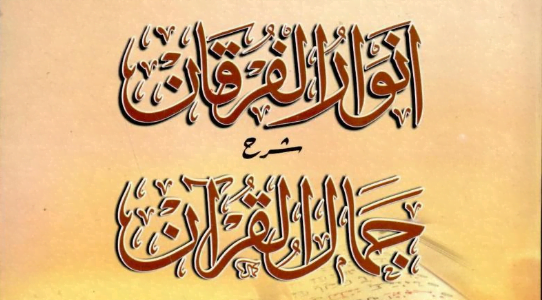 انوار الفرقان
شرح
جمال القرآن